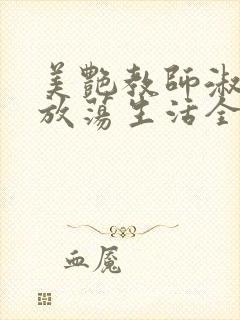 美艷教師淑
放蕩生活全
血魘